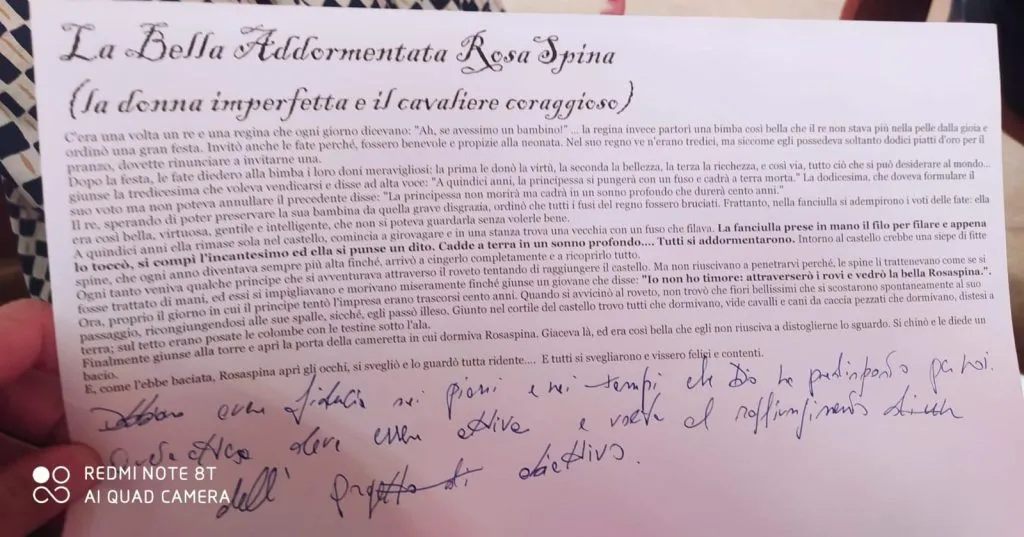 La Bella Addormentata Rosa Spina
(la donna imperfetta e il cavaliere coraggioso)
C'era una volta un re e una regina che ogni giorno dicevano: "Ah, se avessimo un bambino!" ... la regina invece partorì una bimba così bella che il re non stava più nella pelle dalla gioia e
ordinò una gran festa. Invitò anche le fate perché, fossero benevole e propizie alla neonata. Nel suo regno ve n'erano tredici, ma siccome egli possedeva soltanto dodici piatti d'oro per il
pranzo, dovette rinunciare a invitarne una.
Dopo la festa, le fate diedero alla bimba i loro doni meravigliosi: la prima le donò la virtù, la seconda la bellezza, la terza la ricchezza, e così via, tutto ciò che si può desiderare al mondo...
giunse la tredicesima che voleva vendicarsi e disse ad alta voce: "A quindici anni, la principessa si pungerà con un fuso e cadrà a terra morta." La dodicesima, che doveva formulare il
suo voto ma non poteva annullare il precedente disse: "La principessa non morirà ma cadrà in un sonno profondo che durerà cento anni."
Il re, sperando di poter preservare la sua bambina da quella grave disgrazia, ordinò che tutti i fusi del regno fossero bruciati. Frattanto, nella fanciulla si adempirono i voti delle fate: ella
era così bella, virtuosa, gentile e intelligente, che non si poteva guardarla senza volerle bene.
A quindici anni ella rimase sola nel castello, comincia a girovagare e in una stanza trova una vecchia con un fuso che filava. La fanciulla prese in mano il filo per filare e appena
lo toccò, si compì l'incantesimo ed ella si punse un dito. Cadde a terra in un sonno profondo.... Tutti si addormentarono. Intorno al castello crebbe una siepe di fitte
spine, che ogni anno diventava sempre più alta finché, arrivò a cingerlo completamente e a ricoprirlo tutto.
Ogni tanto veniva qualche principe che si avventurava attraverso il roveto tentando di raggiungere il castello. Ma non riuscivano a penetrarvi perché, le spine li trattenevano come se si
fosse trattato di mani, ed essi si impigliavano e morivano miseramente finché giunse un giovane che disse: "Io non ho timore: attraverserò i rovi e vedrò la bella Rosaspina.".
Ora, proprio il giorno in cui il principe tentò l'impresa erano trascorsi cento anni. Quando si avvicinò al roveto, non trovò che fiori bellissimi che si scostarono spontaneamente al suo
passaggio, ricongiungendosi alle sue spalle, sicché, egli passò illeso. Giunto nel cortile del castello trovò tutti che dormivano, vide cavalli e cani da caccia pezzati che dormivano, distesi a
terra; sul tetto erano posate le colombe con le testine sotto l'ala.
Finalmente giunse alla torre e aprì la porta della cameretta in cui dormiva Rosaspina. Giaceva là, ed era così bella che egli non riusciva a distoglierne lo sguardo. Si chinò e le diede un
bacio.
E, come l'ebbe baciata, Rosaspina aprì gli occhi, si svegliò e lo guardò tutta ridente.... E tutti si svegliarono e vissero felici e contenti.
avere fiducia nei piani e nei tempi che Dio ha predisposto per noi.
deve essere attiva e volta al raggiungimento
dell' progetto di obiettivo.
REDMI NOTE 8T
AI QUAD CAMERA